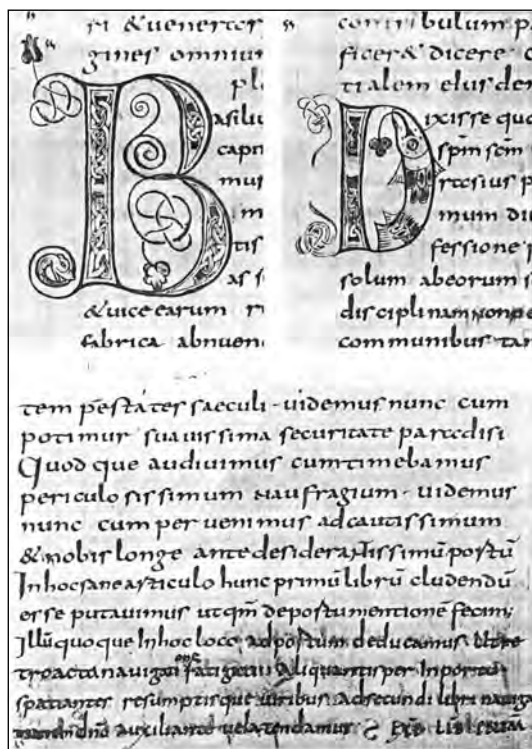 gines omniu
pl
Basiliu
capti
m
tis
as s
&uice earum r
fabrica abnuen
contribulum p
ficer& dicere
tialem eiusde
Dixisse quo
sp̄m scm̄
mum du
fessione p
solum abeorum s
disciplinam non
communibus tan
tem pestates saeculi · uidemus nunc cum
potimur suauissima securitate paradisi
Quod que audiuimus cum timebamus
periculosissimum naufragium · uidemus
nunc cum peruenimus ad cautissimum
& nobis longe ante desiderantissimū portū
In hoc sane articulo hunc primū librū cludendū
esse putauimus utqm̄ de portu mentionē fecim;
Illū quoque In hoc loco ad portum deducamus
troacta nauigatione aliquantisper Inportu
spatiantes resumptisque uiribus Adsecundi libri nauiga
dn̄o auxiliante uela tendamus